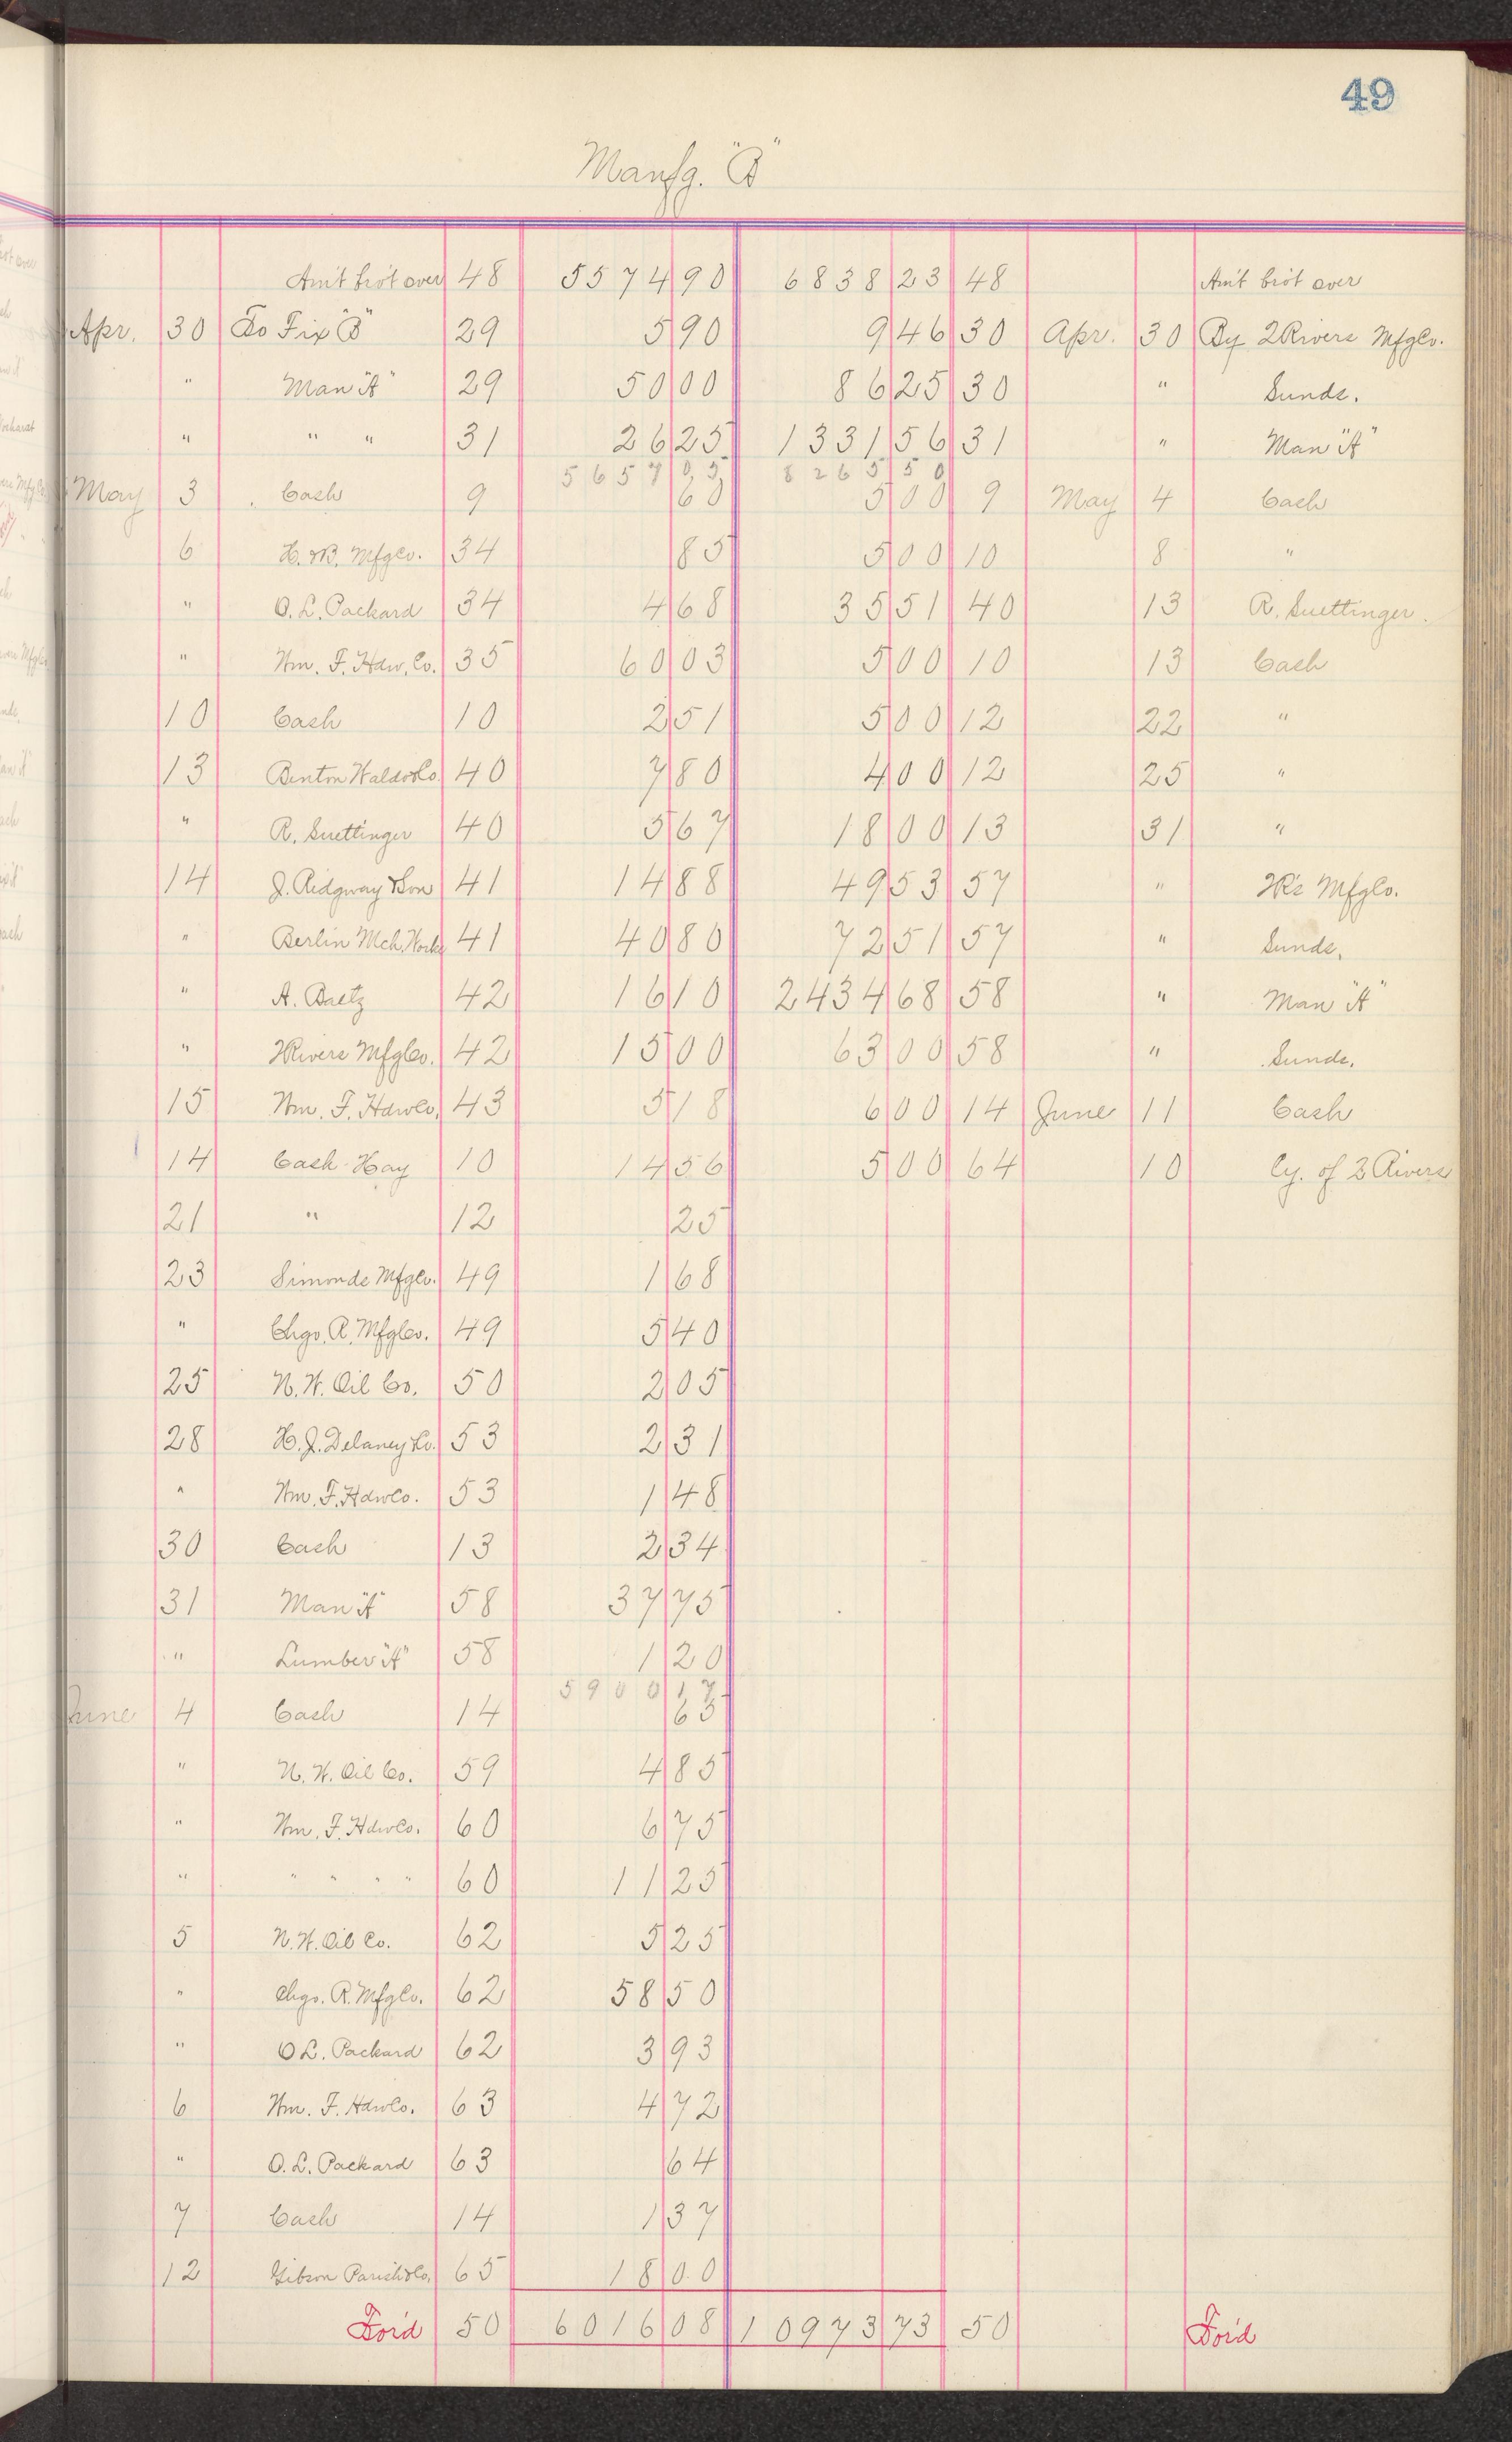 49
Manfg. "B"
Am't bro't over 48 5574 90 6838 23 48 Am't bro't over
Apr. 30 To Fix "B" 29 5 90 9 46 30 Apr. 30 By 2 Rivers Mfg Co.
" Man "A" 29 50 00 86 25 30 " Sunds.
" " " 31 26 25 1331 56 31 " Man "A"
5657 05 8265 50
May 3 Cash 9 60 5 00 9 May 4 Cash
6 H. & B. Mfg Co. 34 85 5 00 10 8 "
" O. L. Packard 34 4 68 35 51 40 13 R. Suettinger.
" Wm. F. Hdw. Co. 35 60 03 5 00 10 13 Cash
10 Cash 10 2 51 5 00 12 22 "
13 Benton Waldo & Co. 40 7 80 4 00 12 25 "
" R. Suettinger 40 5 67 18 00 13 31 "
14 J. Ridgway & Son 41 14 88 49 53 57 " 2R's Mfg Co.
" Berlin Mch. Works 41 40 80 72 51 57 " Sunds.
" A. Baetz 42 16 10 2434 68 58 " Man "A"
" 2 Rivers Mfg Co. 42 15 00 63 00 58 " Sunds.
15 Wm. F. Hdw Co. 43 5 18 6 00 14 June 11 Cash
14 Cash Hay 10 14 56 5 00 64 10 Cy. of 2 Rivers
21 " 12 25
23 Simonds Mfg Co. 49 1 68
" Chgo. R. Mfg Co. 49 5 40
25 N. W. Oil Co. 50 2 05
28 H. J. Delaney & Co. 53 2 31
" Wm. F. Hdw Co. 53 1 48
30 Cash 13 2 34
31 Man "A" 58 37 75
" Lumber "A" 58 1 20
5900 17
June 4 Cash 14 65
" N. W. Oil Co. 59 4 85
" Wm. F. Hdw Co. 60 6 75
" " " " " 60 11 25
5 N. W. Oil Co. 62 5 25
" Chgo. R. Mfg Co. 62 58 50
" O L. Packard 62 3 93
6 Wm. F. Hdw Co. 63 4 72
" O. L. Packard 63 64
7 Cash 14 1 37
12 Gibson Parish & Co. 65 18 00
For'd 50 6016 08 10973 73 50 For'd